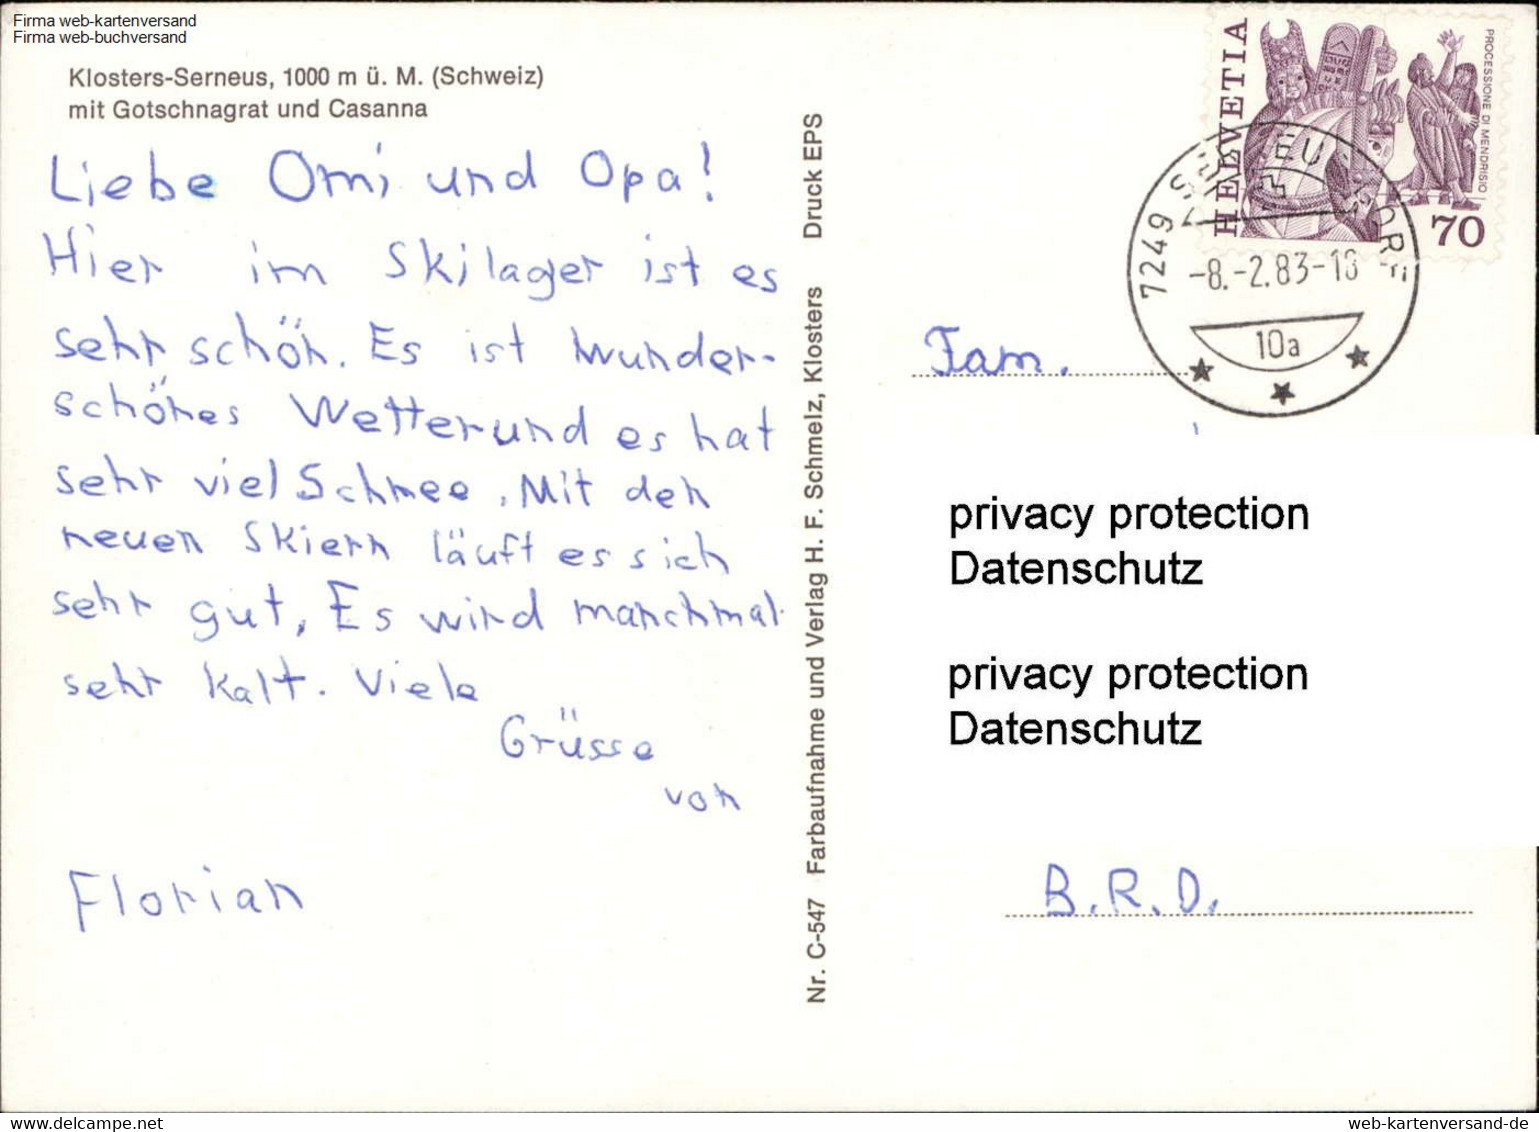 Firma web-kartenversand
Firma web-buchversand
Klosters-Serneus, 1000 m ü. M. (Schweiz)
mit Gotschnagrat und Casanna
Liebe Omi und Opa!
Hier im Skilager ist es
sehr schön. Es ist wunder-
schönes Wetter und es hat
sehr viel Schnee. Mit den
neuen Skiern läuft es sich
sehr gut, Es wird manchmal
sehr kalt. Viele
Grüsse
von
Florian
Nr. C-547 Farbaufnahme und Verlag H. F. Schmelz, Klosters Druck EPS
HELVETIA
PROCESSIONE DI MENDRISIO
70
7249 SERNEUS DORF
-8.-2.83-18
10a
Fam.
privacy protection
Datenschutz
privacy protection
Datenschutz
B.R.D.
www.delcampe.net
web-kartenversand-de